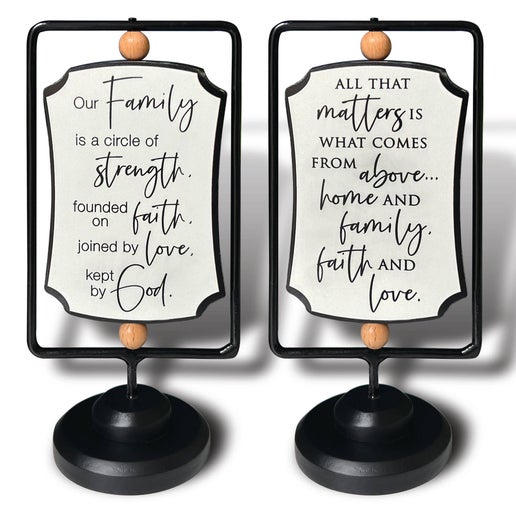 Our Family
is a circle of
strength,
founded
on faith,
joined by love,
kept
by God.
ALL THAT
matters IS
WHAT COMES
FROM above...
home AND
family,
faith AND
love.